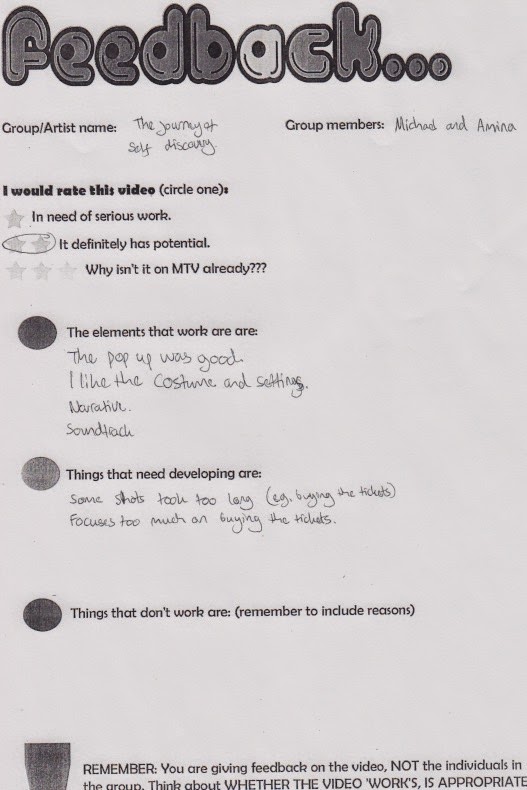 Feedback...
Group/Artist name: The Journey of Group members: Michael and Amina
Self discovry
I would rate this video (circle one):
In need of serious work.
It definitely has potential.
Why isn't it on MTV already???
The elements that work are are:
The pop up was good.
I like the costume and settings.
Narrative.
Soundtrack
Things that need developing are:
Some shots took too long (eg. buying the tickets)
Focuses too much on buying the tickets.
Things that don't work are: (remember to include reasons)
REMEMBER: You are giving feedback on the video, NOT the individuals in
the group. Think about WHETHER THE VIDEO 'WORK'S, IS APPROPRIATE